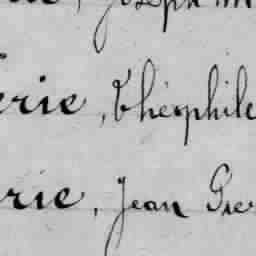 , Joseph M
erie, Théophile
rie, Jean Pie